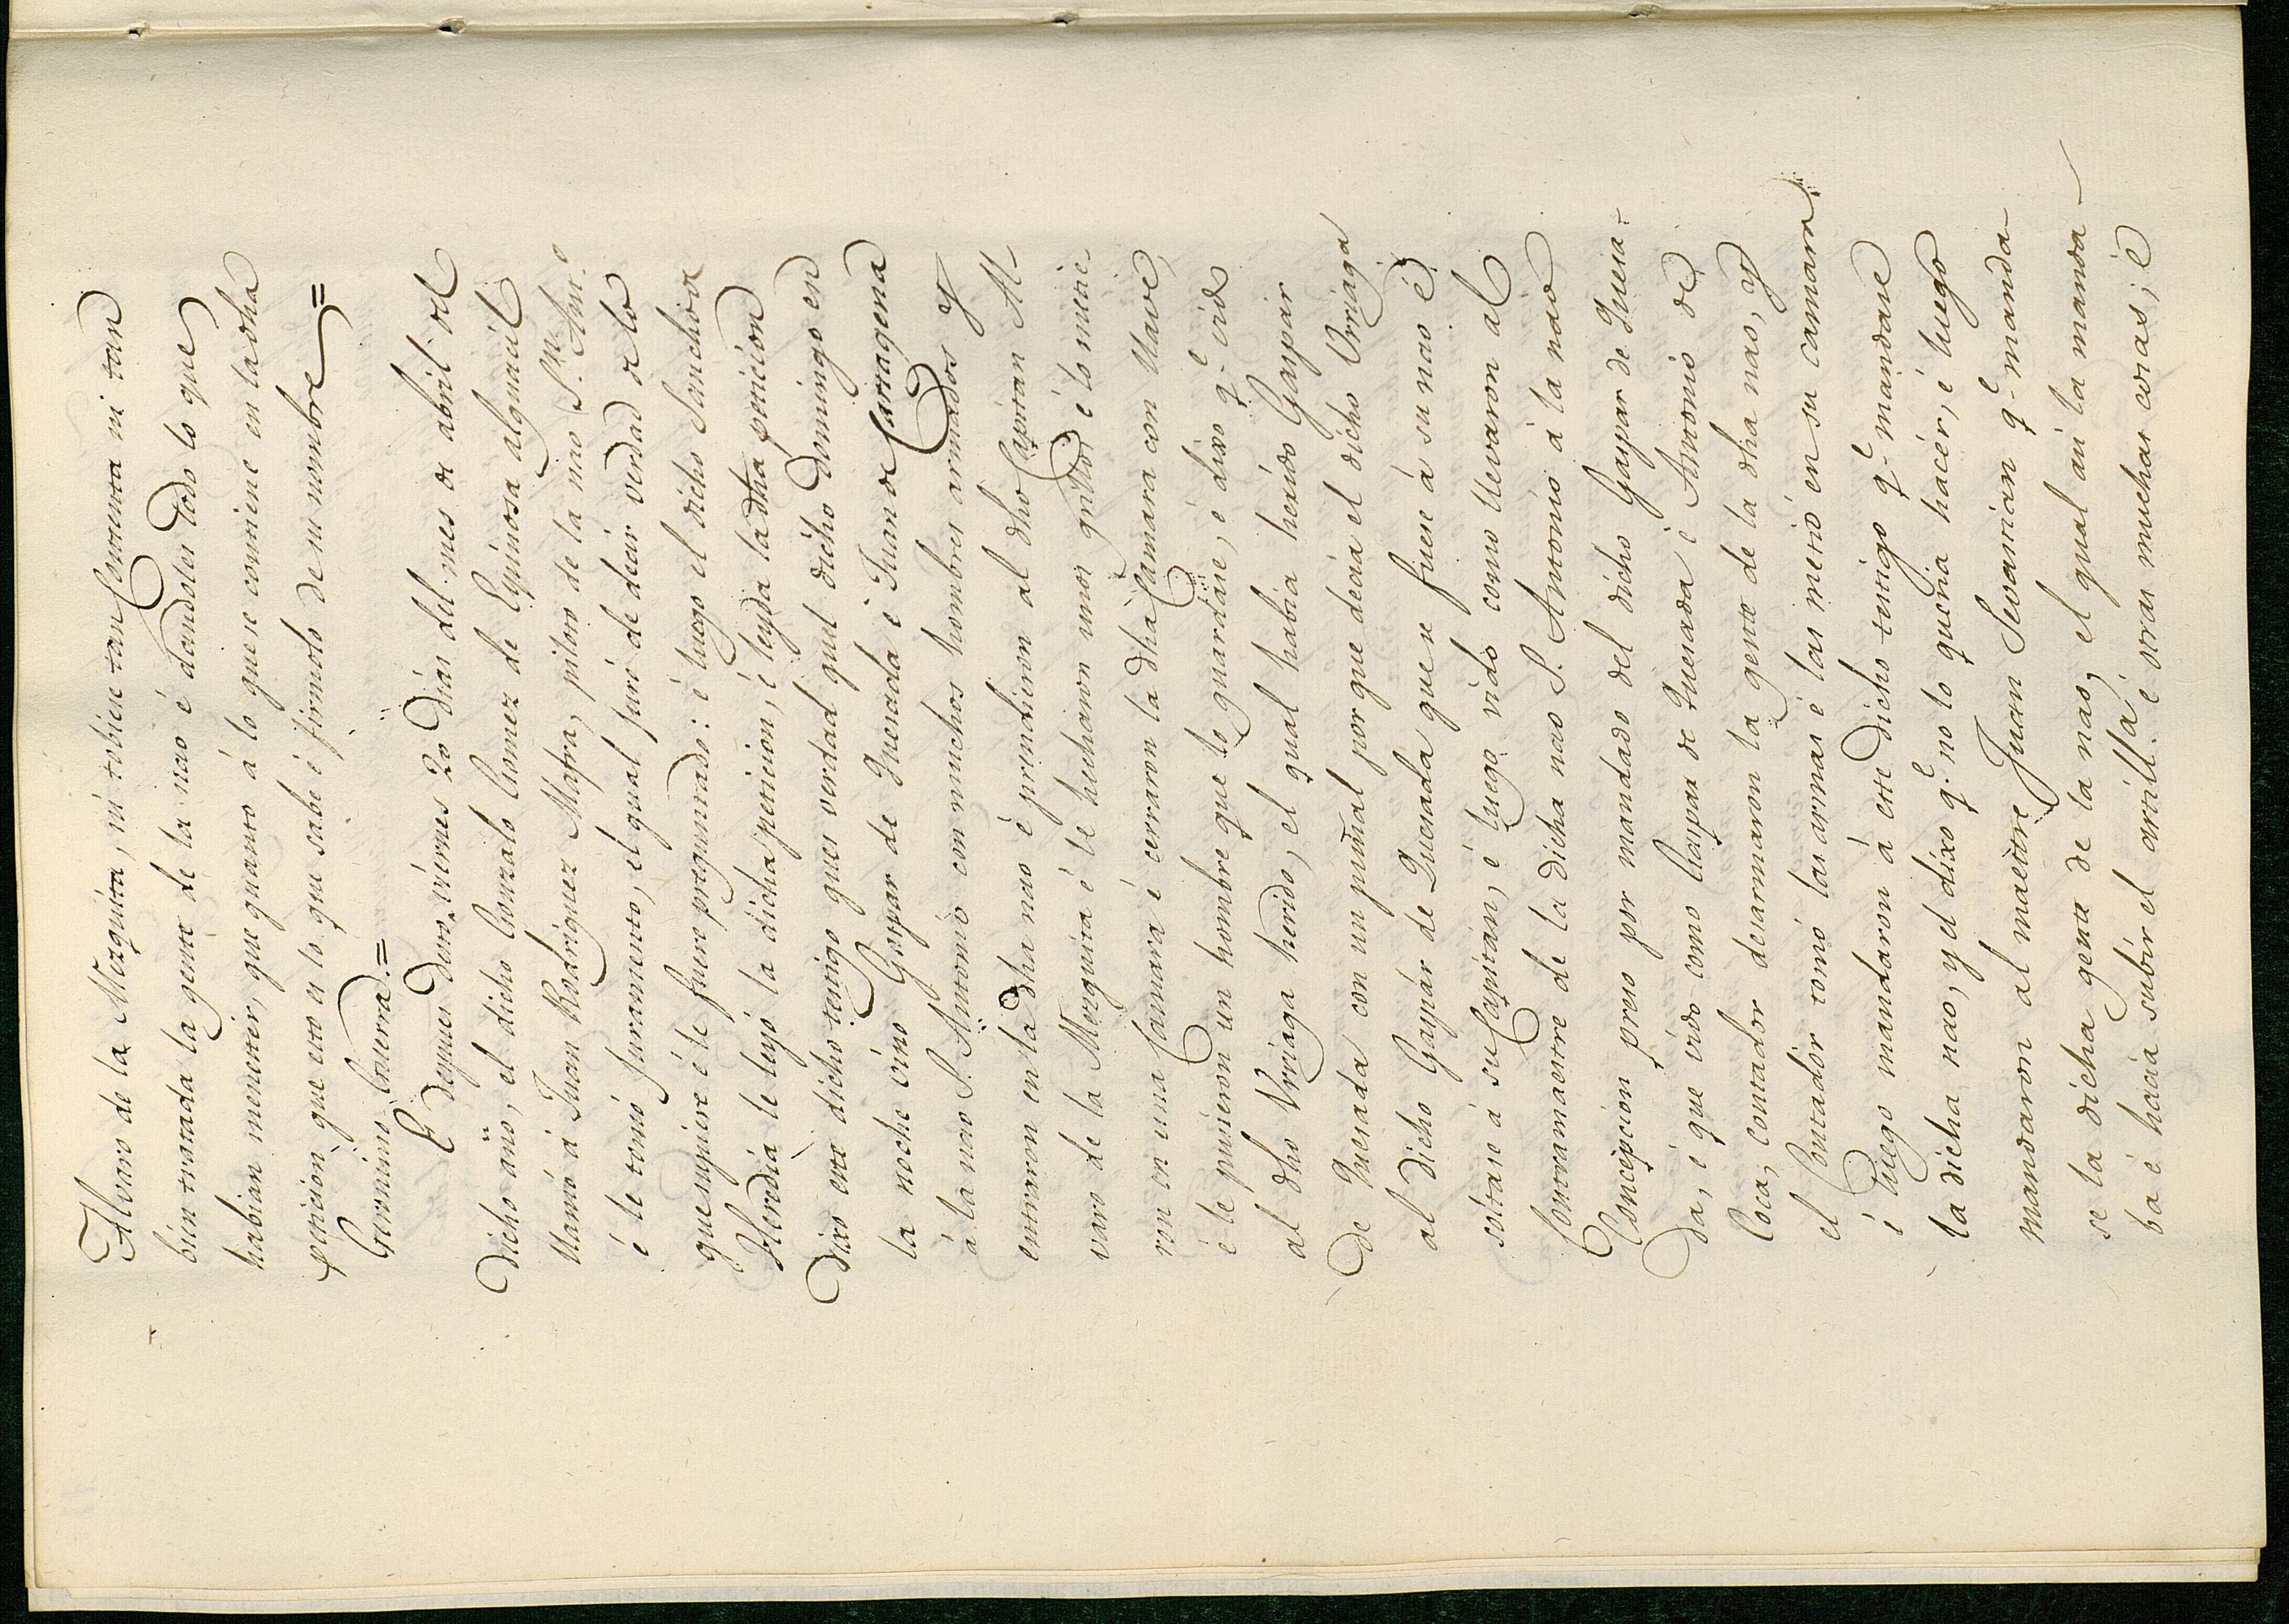 Alvaro de la Mezquita, ni tobiese tan Contenta ni tan
bien tratada la gente de la nao é dandoles todo lo que
habian menester, que quanto á lo que se contiene en la dha
peticion que esto es lo que sabe é firmolo de su nombre =
Geronimo Guerra. =
E despues desto, viernes 20 dias del mes de abril del
dicho año, el dicho Gonzalo Gomez de Espinosa alguacil
llamó á Juan Rodriguez Mafra, piloto de la nao S.n Ant.o
é le tomó juramento, el qual juró de decir verdad de lo
que supiere é le fuere preguntado: é luego el dicho Sancho de
Heredia le leyó la dicha peticion, é leyda la dha peticion
dixo este dicho testigo ques verdad quel dicho domingo en
la noche vino Gaspar de Quesada é Juan de Cartagena
á la nao S. Antonio con muchos hombres armados y
entraron en la dha nao é prendieron al dho Capitan Al-
varo de la Mezquita é le hecharon unos grillos, é lo metie
ron en una Camara é cerraron la dha Camara con llave,
é le pusieron un hombre que lo guardase, é dixo q.e vido
al dho Urriaga herido, el qual habia herido Gaspar
de Quesada con un puñal porque decia el dicho Urriaga
al dicho Gaspár de Quesada que se fuese á su nao é
soltase á su Capitán, é luego vido como llevaron al
Contramaestre de la dicha nao S. Antonio á la nao
Concepcion preso por mandado del dicho Gaspar de Quesa-
da, é que vido como Gaspar de Quesada é Antonio de
Coca, contador desarmaron la gente de la dha nao, y
el Contadór tomó las armas é las metió en su camara
é luego mandaron á este dicho testigo q.e mandase
la dicha nao, y el dixo q.e no lo queria hacer, é luego
mandaron al maestre Juan Sevastian q.e manda-
se la dicha gente de la nao, el qual asi la manda-
ba é hacia subir el artill.a é otras muchas cosas; é